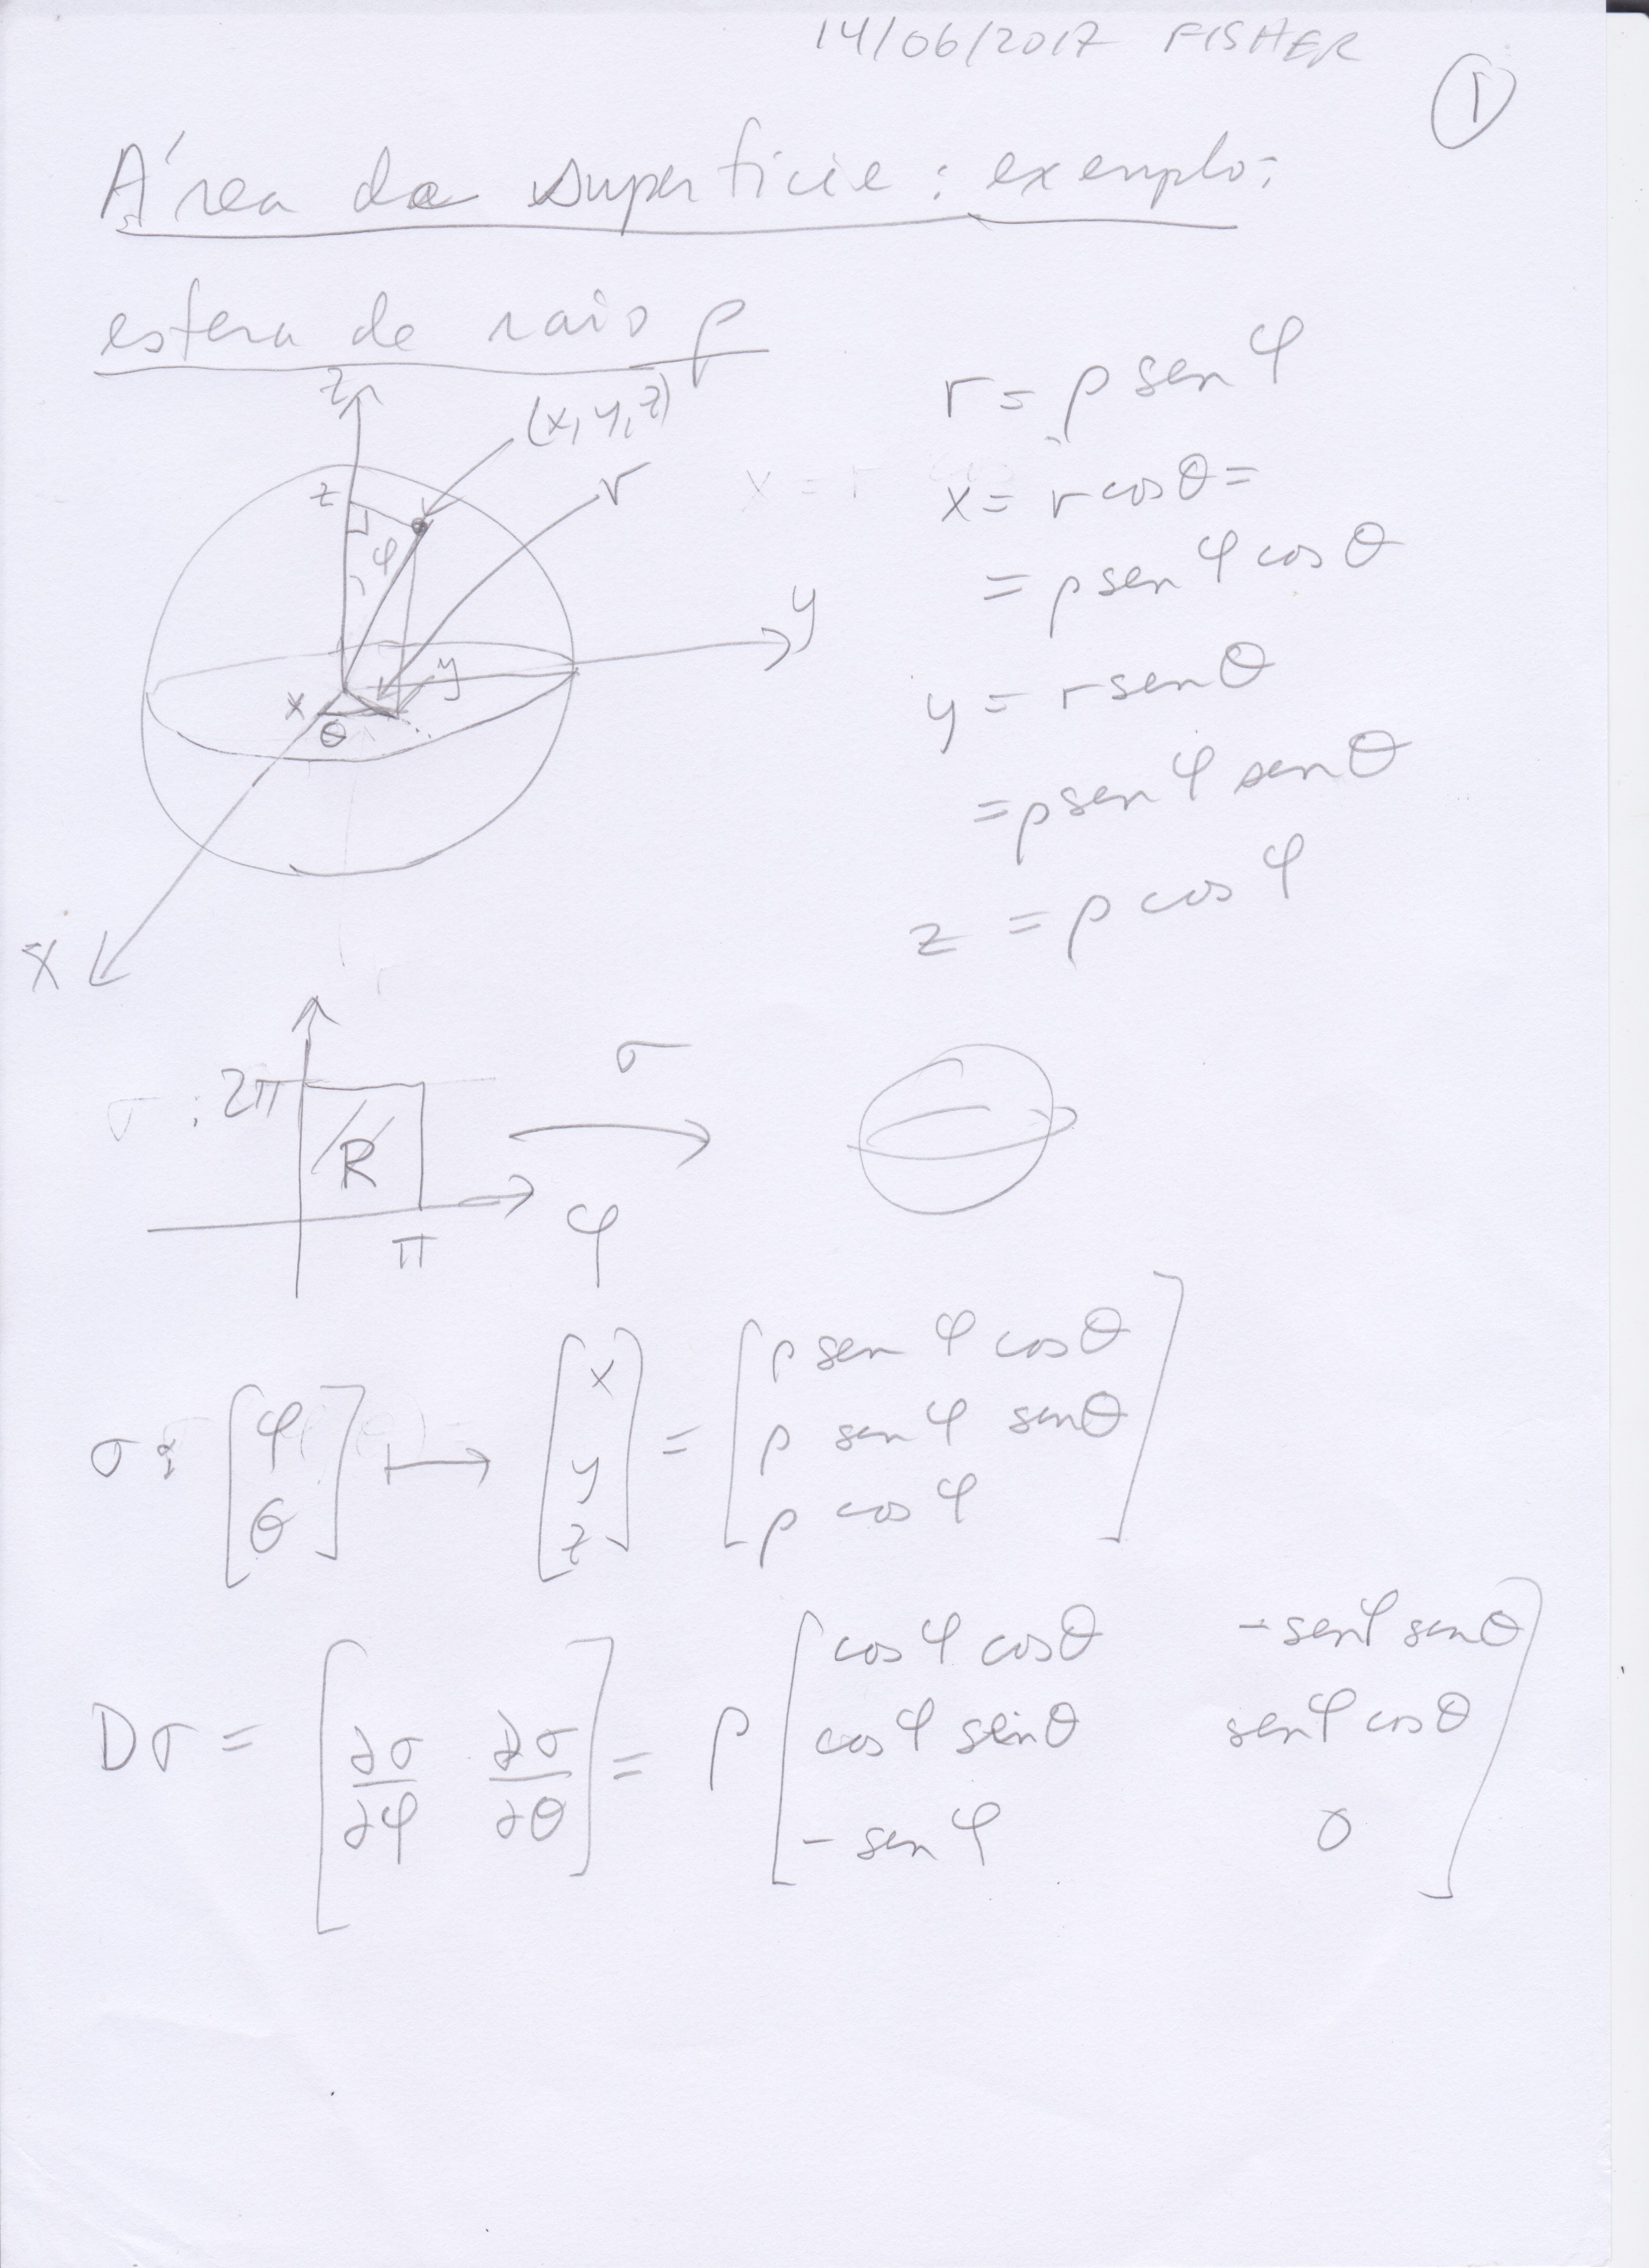 14/06/2017 FISHER
1
Área da superfície: exemplo:
esfera de raio ρ
z
(x, y, z)
r
z
φ
y
x
θ
y
x
r = ρ sen φ
x = r cos θ =
= ρ sen φ cos θ
y = r sen θ
= ρ sen φ sen θ
z = ρ cos φ
σ : 2π
R
π
φ
σ
σ : [φ θ] ↦ [x y z] = [ρ sen φ cos θ
ρ sen φ sen θ
ρ cos φ]
Dσ = [∂σ/∂φ ∂σ/∂θ] = ρ [cos φ cos θ -sen φ sen θ
cos φ sin θ sen φ cos θ
- sen φ 0]